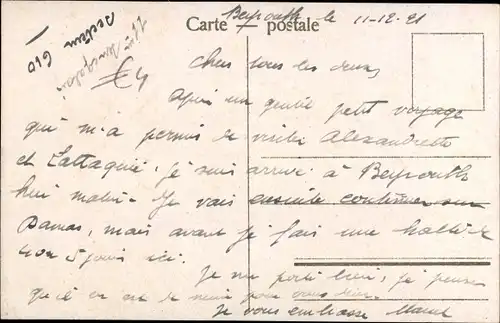 Carte postale
Beyrouth le 11-12-21
Chers tous les deux,
Après un gentil petit voyage
qui m'a permis de visiter Alexandrette
et Lattaquié, je suis arrivé à Beyrouth
hier matin. Je vais ensuite continuer sur
Damas, mais avant je fais une halte de
5 jours ici.
Je me porte bien, je pense
qu'il en est de même pour vous deux.
Je vous embrasse Marcel
€4
610